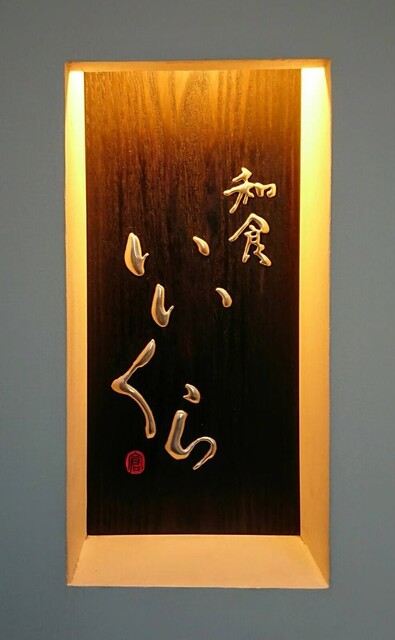 和食
いいくら
倉